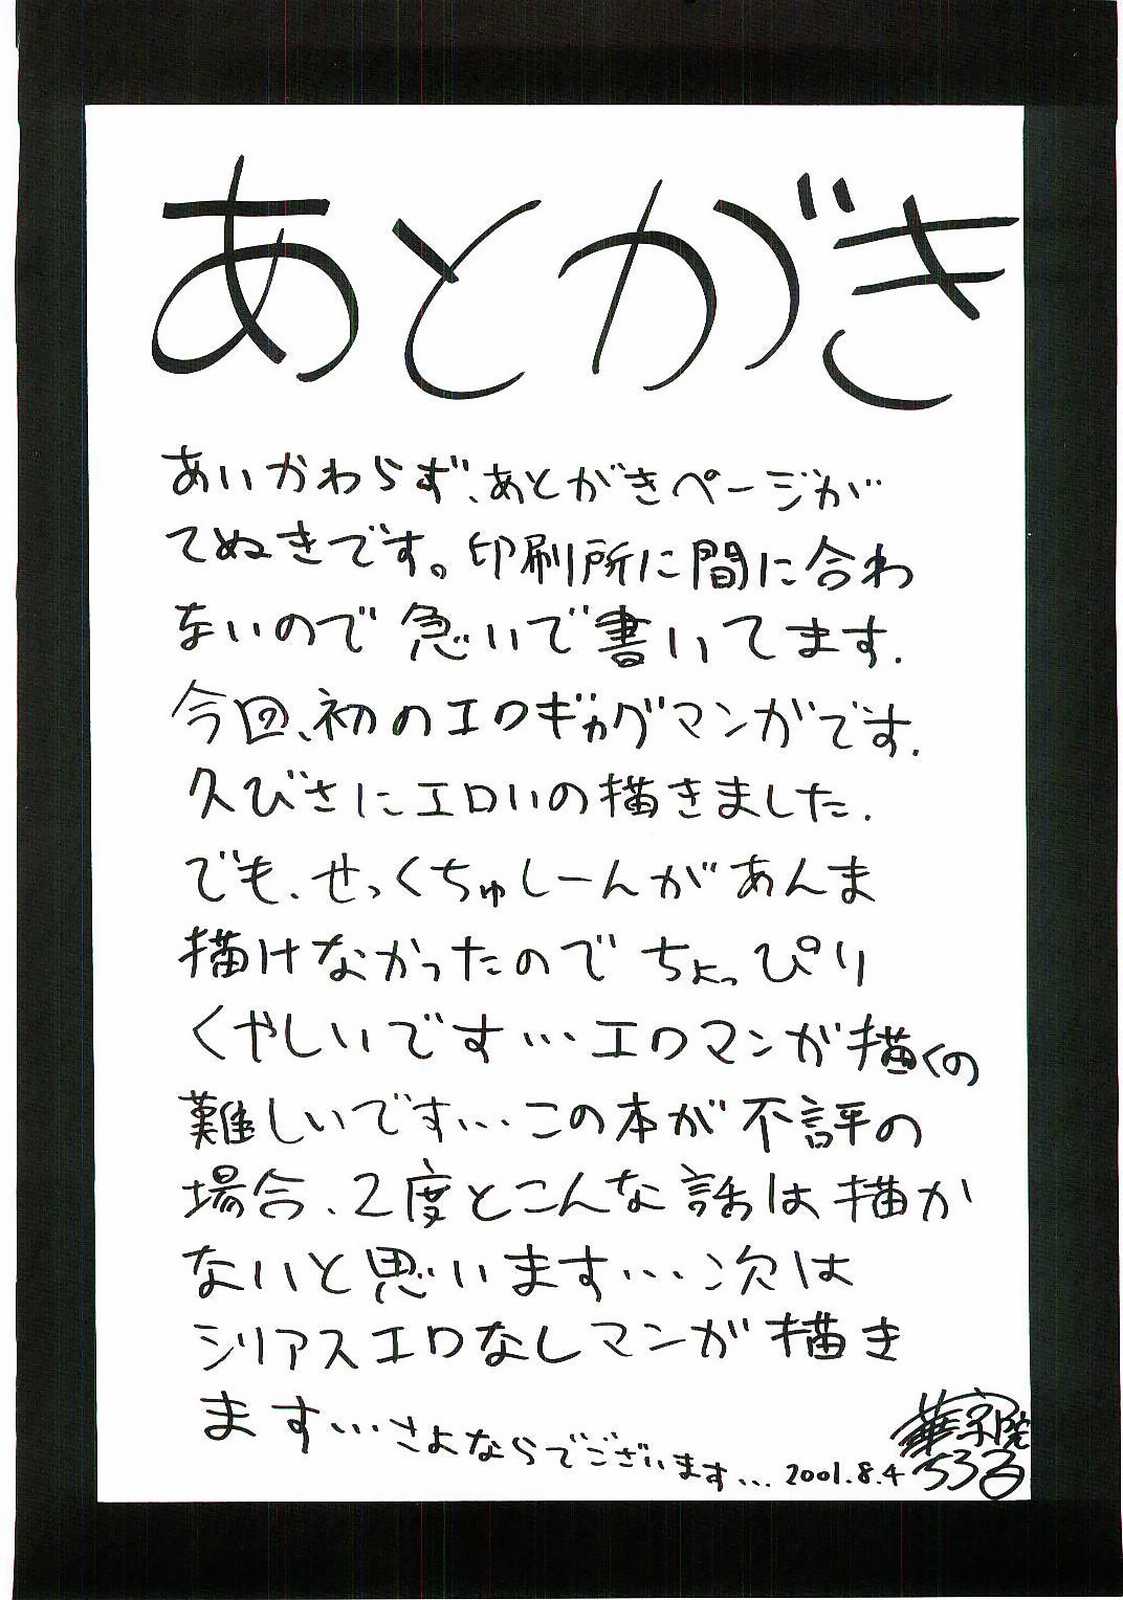 あとがき
あいかわらず、あとがきページが
てぬきです。印刷所に間に合わ
ないので急いで書いてます.
今回、初のエロギャグマンガです.
久びさにエロいの描きました.
でも、せっくちゅしーんがあんま
描けなかったのでちょっぴり
くやしいです…エロマンが描くの
難しいです…この本が不評の
場合、2度とこんな話は描か
ないと思います…次は
シリアスエロなしマンが描き
ます…さよならでございます…
2001.8.4
ちろる